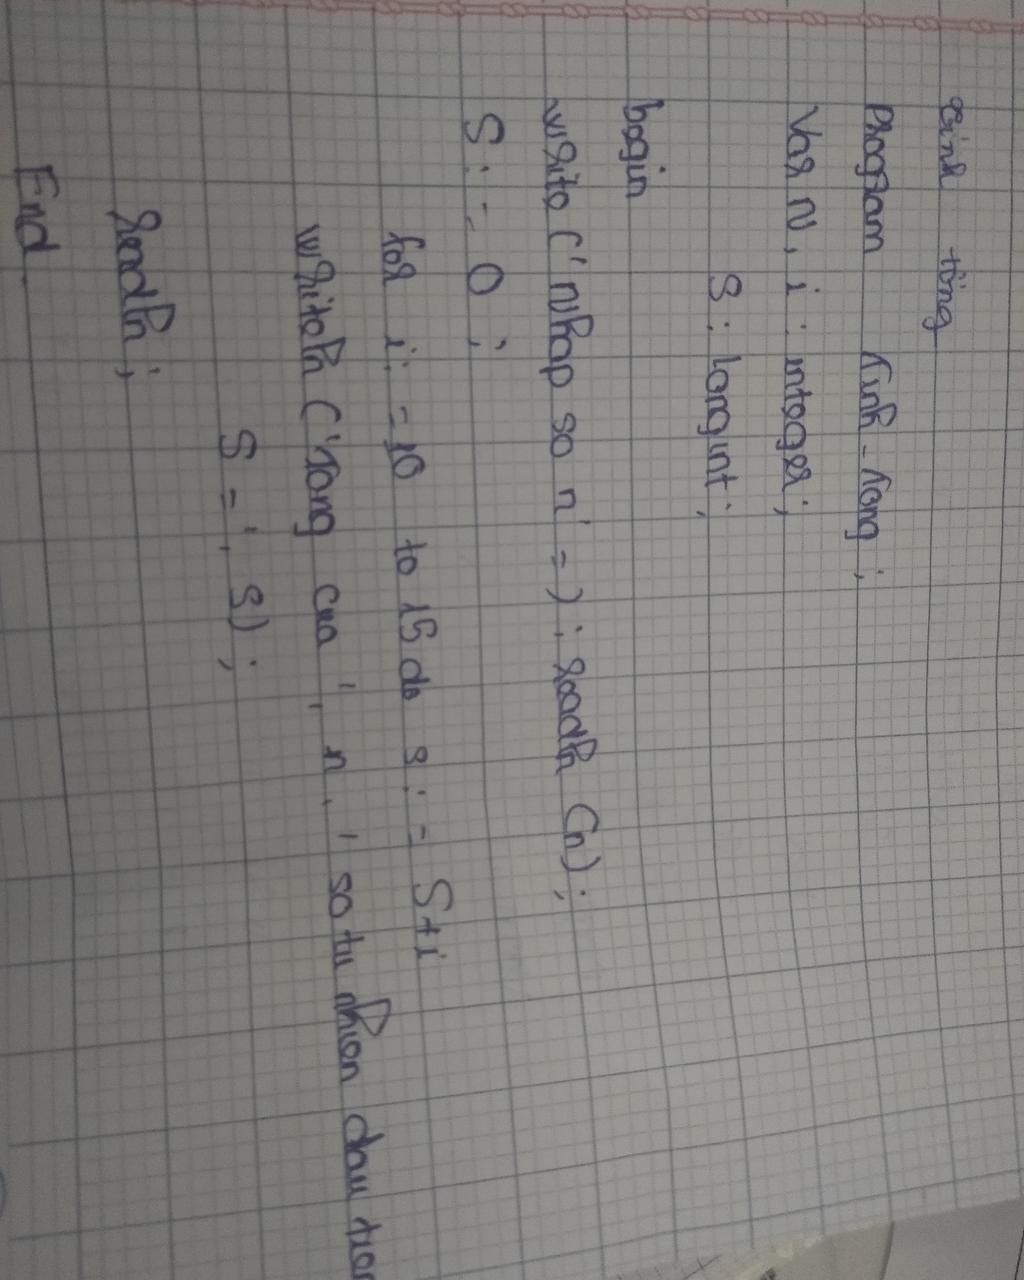 Tính tổng
Program Tinh_Tong;
Var N, i : integer;
S : longint;
begin
write ('Nhap so n' = ) ; readln (n);
S : = 0 ;
for i : = 10 to 15 do s : = S + i
writeln ('Tong cua ', n, ' so tu nhien dau tien
S = ', S);
readln ;
End.